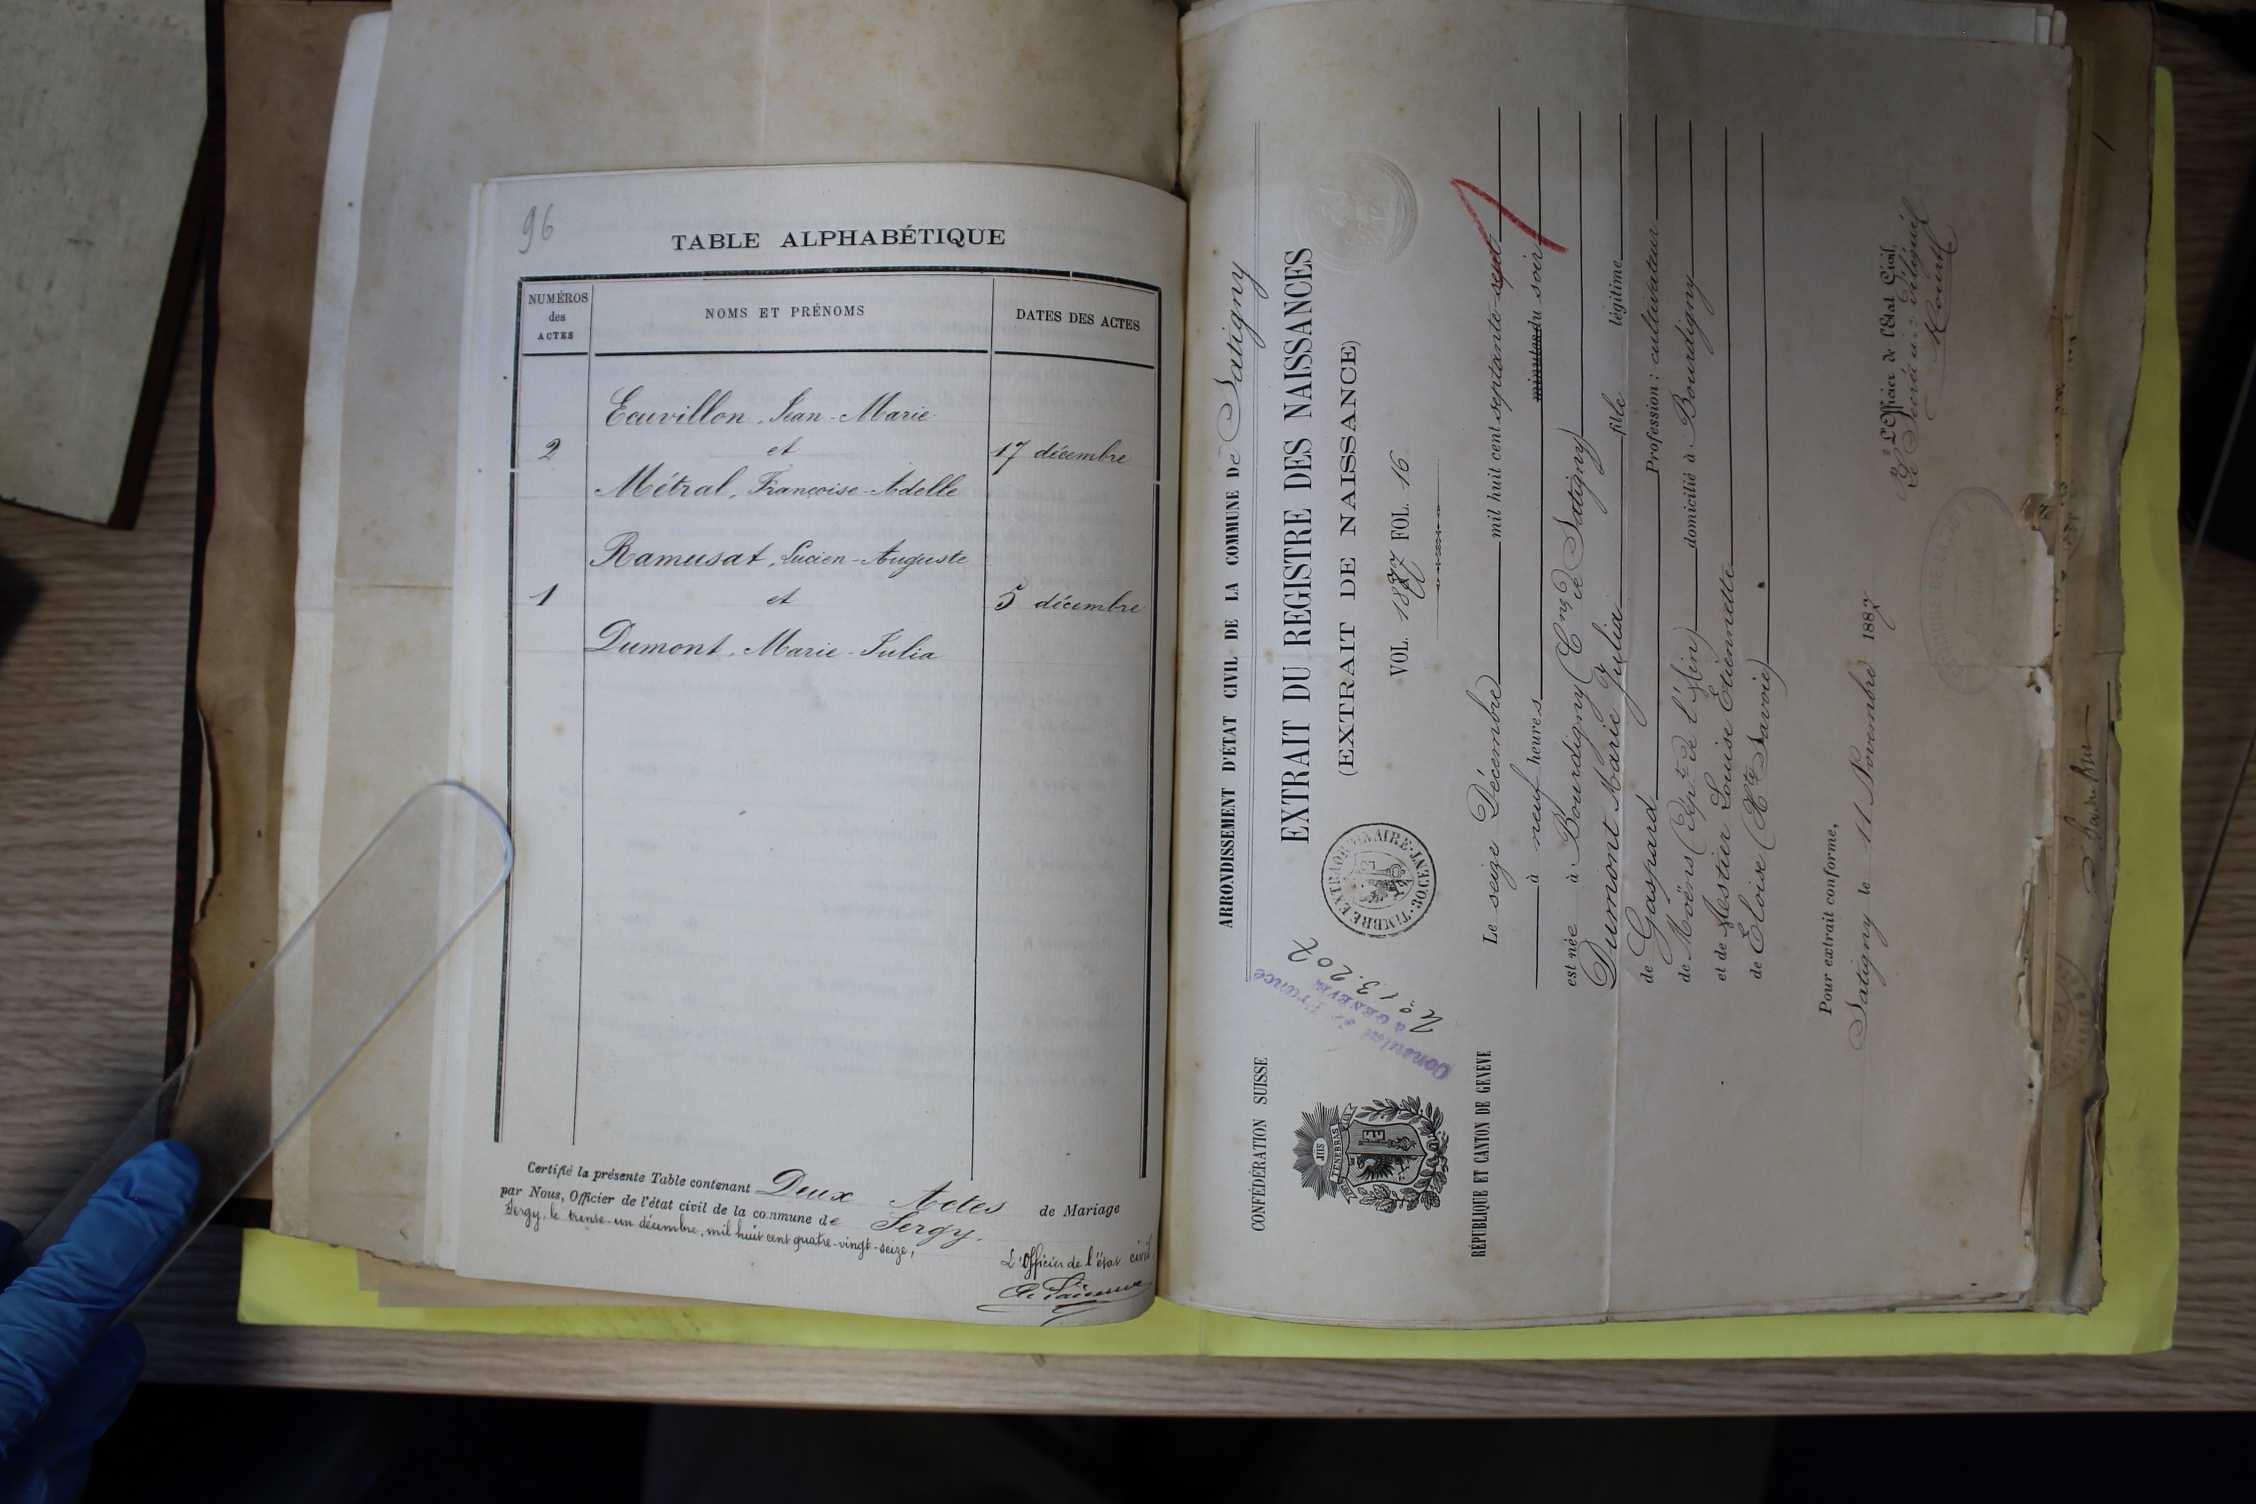 96
TABLE ALPHABÉTIQUE
NUMÉROS
des
ACTES
NOMS ET PRÉNOMS
DATES DES ACTES
Ecuvillon, Jean-Marie
2 et 17 décembre
Métral, Françoise-Adelle
Ramusat, Lucien-Auguste
1 et 5 décembre
Dumont, Marie-Julia
Certifié la présente Table contenant Deux Actes de Mariage
par Nous, Officier de l'état civil de la commune de Sergy.
Sergy, le trente-un décembre, mil huit cent quatre-vingt-seize,
L'Officier de l'état civil
CONFÉDÉRATION SUISSE
RÉPUBLIQUE ET CANTON DE GENÈVE
Consulat de France
à GENÈVE
No 13.207
ARRONDISSEMENT D'ÉTAT CIVIL DE LA COMMUNE DE Satigny
EXTRAIT DU REGISTRE DES NAISSANCES
(EXTRAIT DE NAISSANCE)
TIMBRE EXTRAORDINAIRE
VOL. 1877 FOL. 16
Le seize Décembre mil huit cent septante-sept
à neuf heures minutes du soir
est née à Bourdigny (Cne de Satigny)
Dumont Marie Julia fille légitime
de Gaspard Profession : cultivateur
de Moëns (Dépt de l'Ain) domicilié à Bourdigny
et de Mestier Louise Etiennette
de Eloise (Hte Savoie)
Pour extrait conforme,
Satigny le 11 Novembre 1887
L'Officier de l'État Civil,